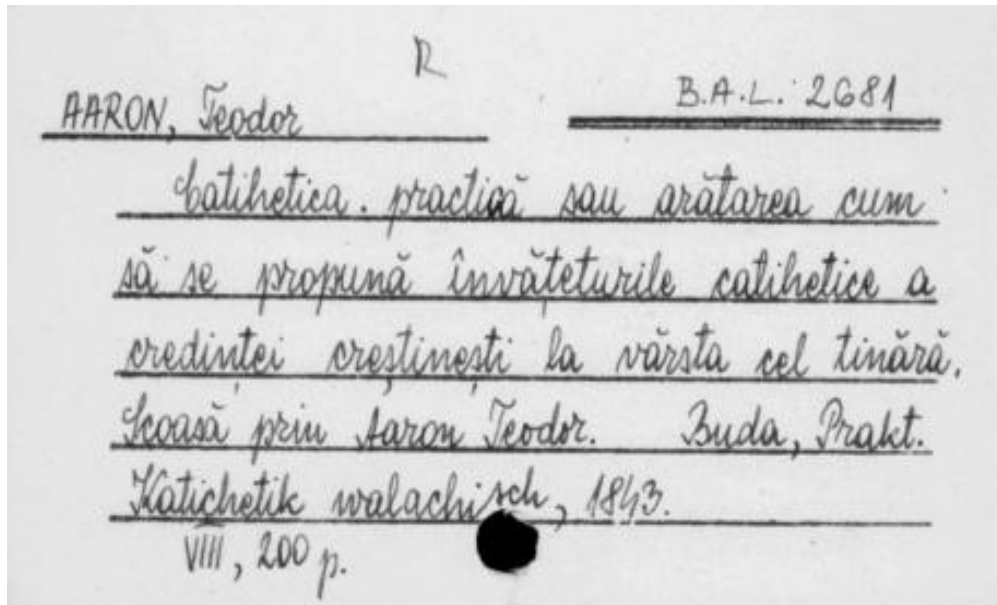 R
B.A.L. 2681
AARON, Teodor
Catihetica. practică sau arătarea cum
să se propună învăţeturile catihetice a
credinţei creştineşti la vărsta cel tinără.
Scoasă prin Aaron Teodor. Buda, Prakt.
Katichetik walachisch, 1843.
VIII, 200 p.